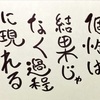 個性は
結果じゃ
なく過程
に現れる